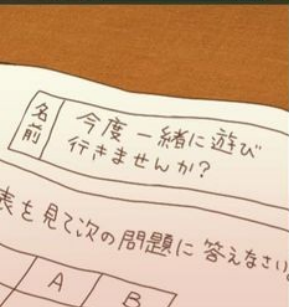 名前
今度一緒に遊び
行きませんか?
表を見て次の問題に答えなさい。
A B